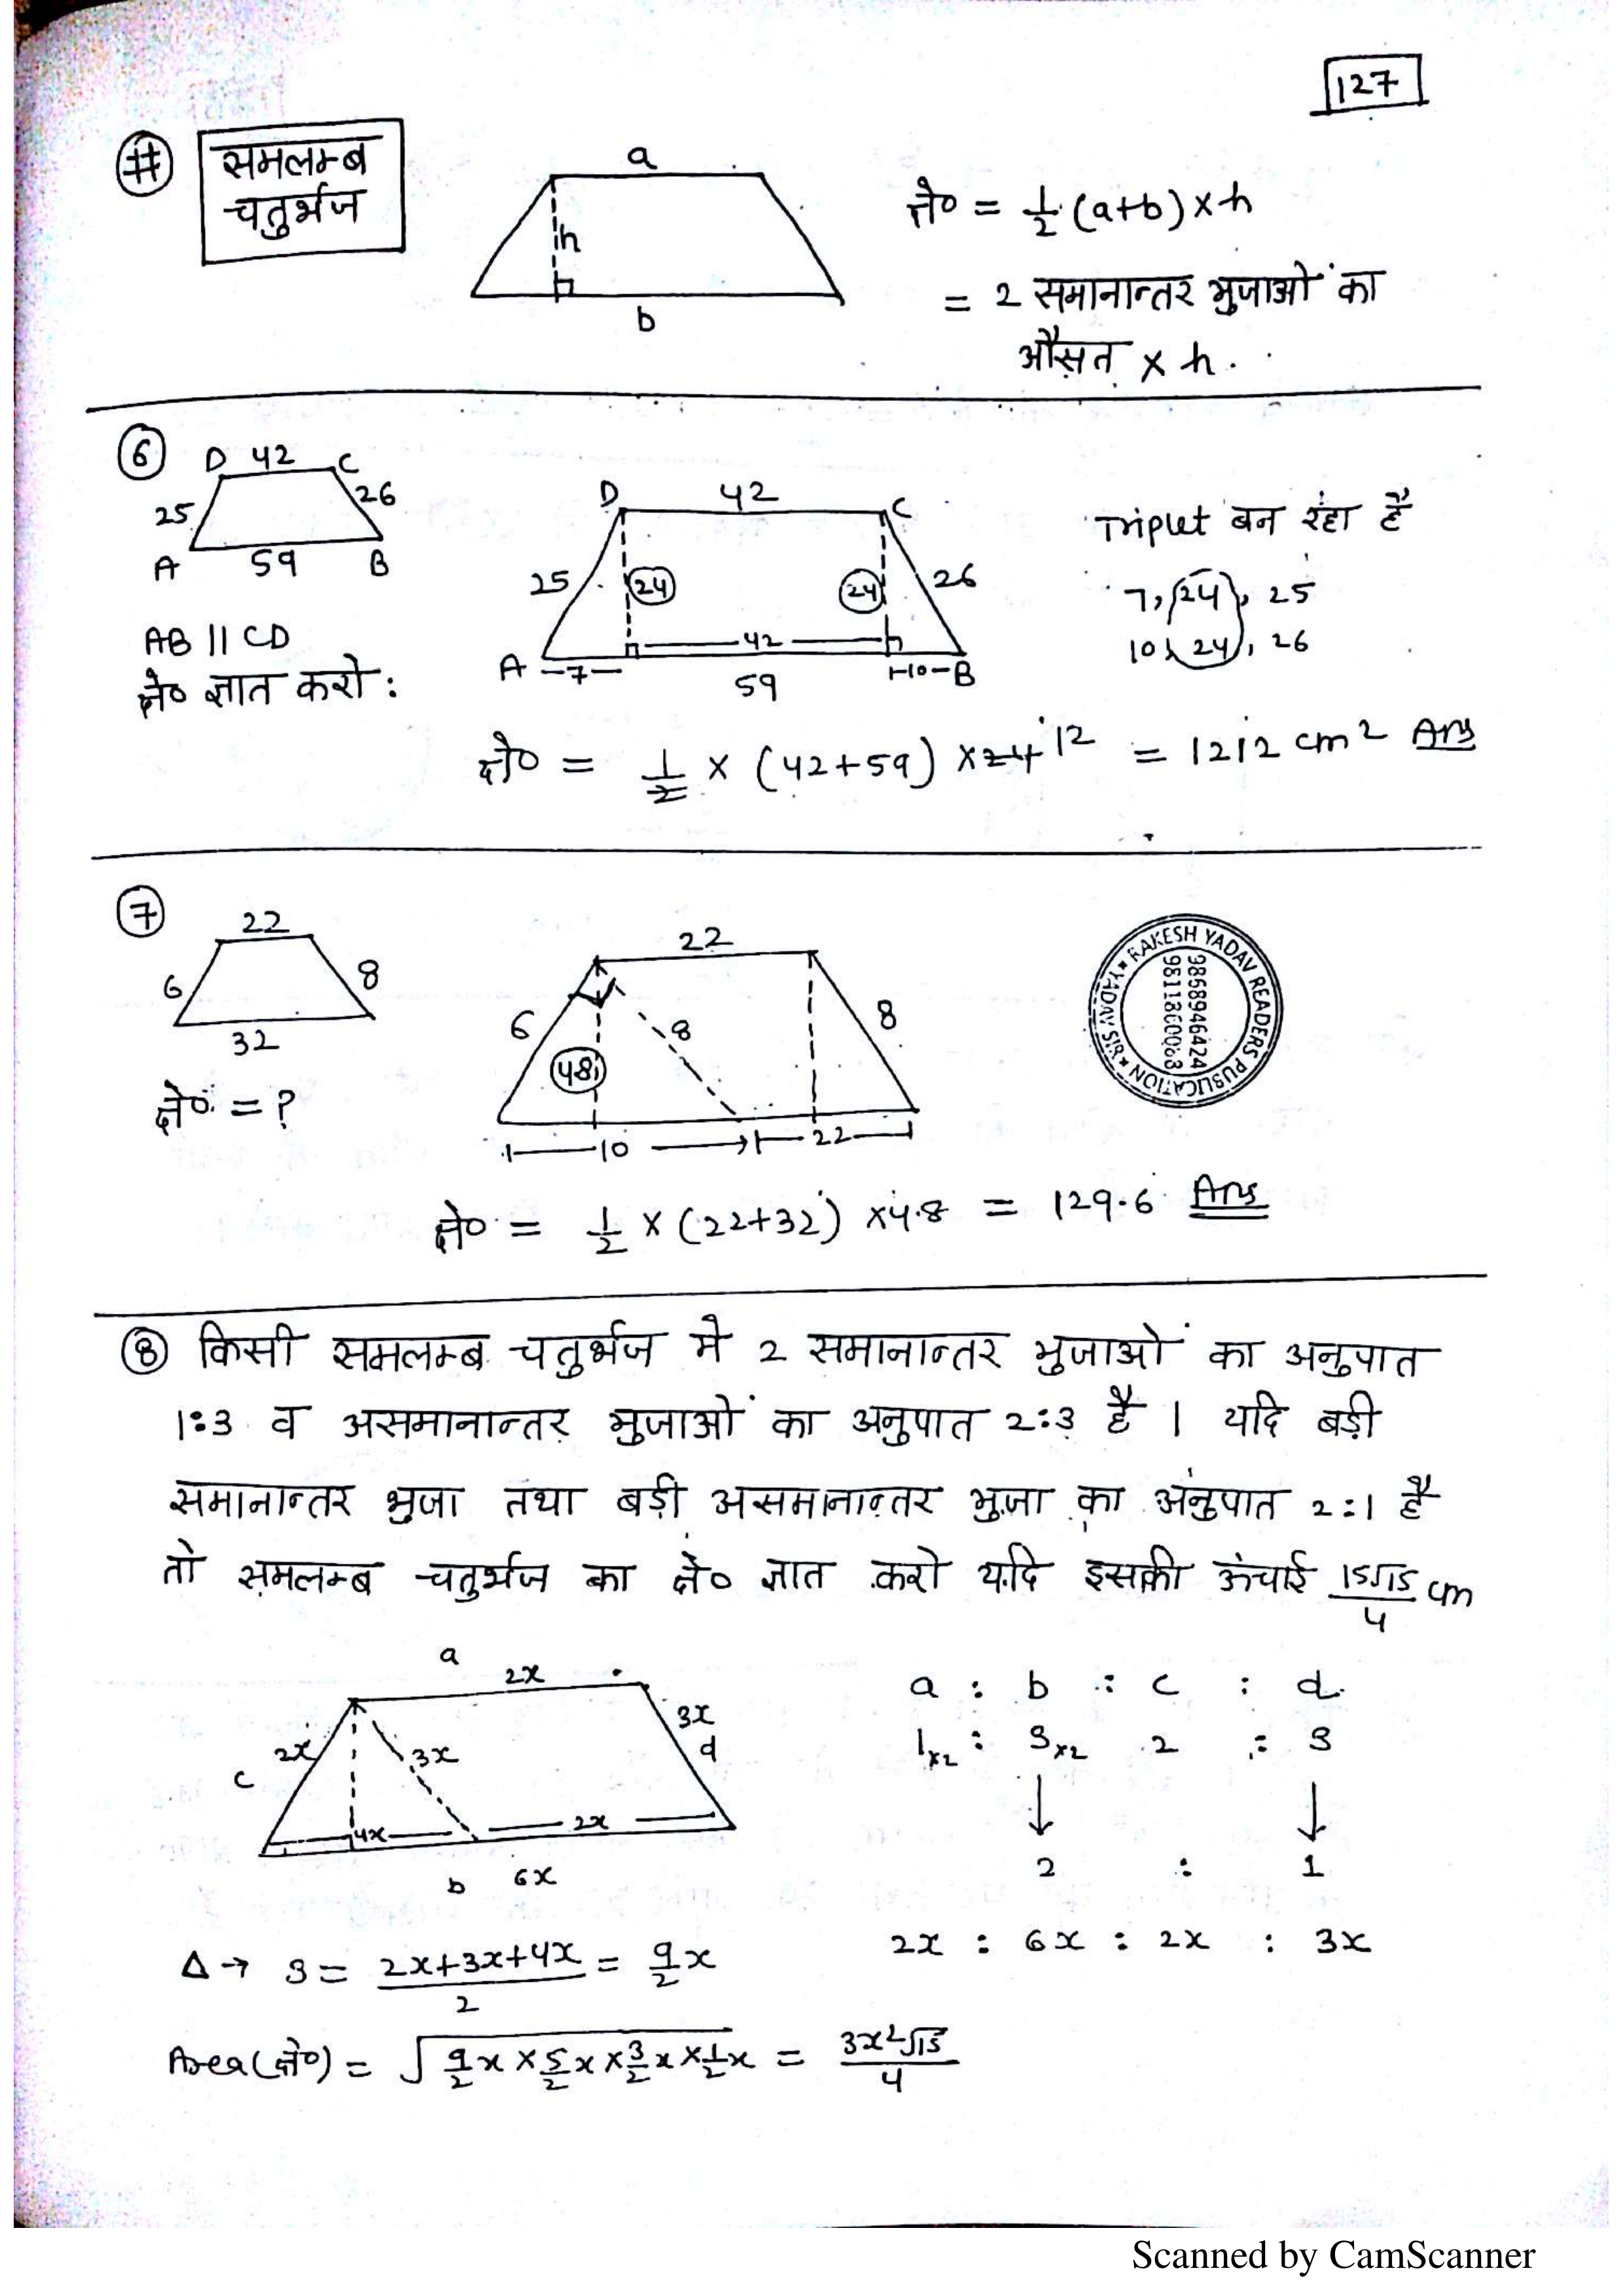 127
# समलम्ब
चतुर्भुज
a
h
b
क्षे० = 1/2 (a+b) × h
= 2 समानान्तर भुजाओं का
औसत × h.
6
D 42 C
25 26
A 59 B
AB || CD
क्षे० ज्ञात करो :
D 42 C
25 24 24 26
42
A 7 10 B
59
Triplet बन रहा है
7, 24, 25
10, 24, 26
क्षे० = 1/2 × (42+59) × 24 12 = 1212 cm² Ans
7
22
6 8
32
क्षे० = ?
22
6 8 8
4.8
10 22
RAKESH YADAV READERS PUBLICATION
YADAV SIR
9868946424
क्षे० = 1/2 × (22+32) × 4.8 = 129.6 Ans
8 किसी समलम्ब चतुर्भुज मे 2 समानान्तर भुजाओं का अनुपात
1:3 व असमानान्तर भुजाओं का अनुपात 2:3 है । यदि बड़ी
समानान्तर भुजा तथा बड़ी असमानान्तर भुजा का अनुपात 2:1 है
तो समलम्ब चतुर्भुज का क्षे० ज्ञात करो यदि इसकी ऊंचाई 15√15/4 cm
a
2x
2x 3x 3x
c d
4x 2x
b 6x
a : b : c : d
1×2 : 3×2 2 : 3
↓ ↓
2 : 1
2x : 6x : 2x : 3x
Δ → S = 2x+3x+4x/2 = 9/2 x
Area(क्षे०) = √9/2 x × 5/2 x × 3/2 x × 1/2 x = 3x²√15/4
Scanned by CamScanner